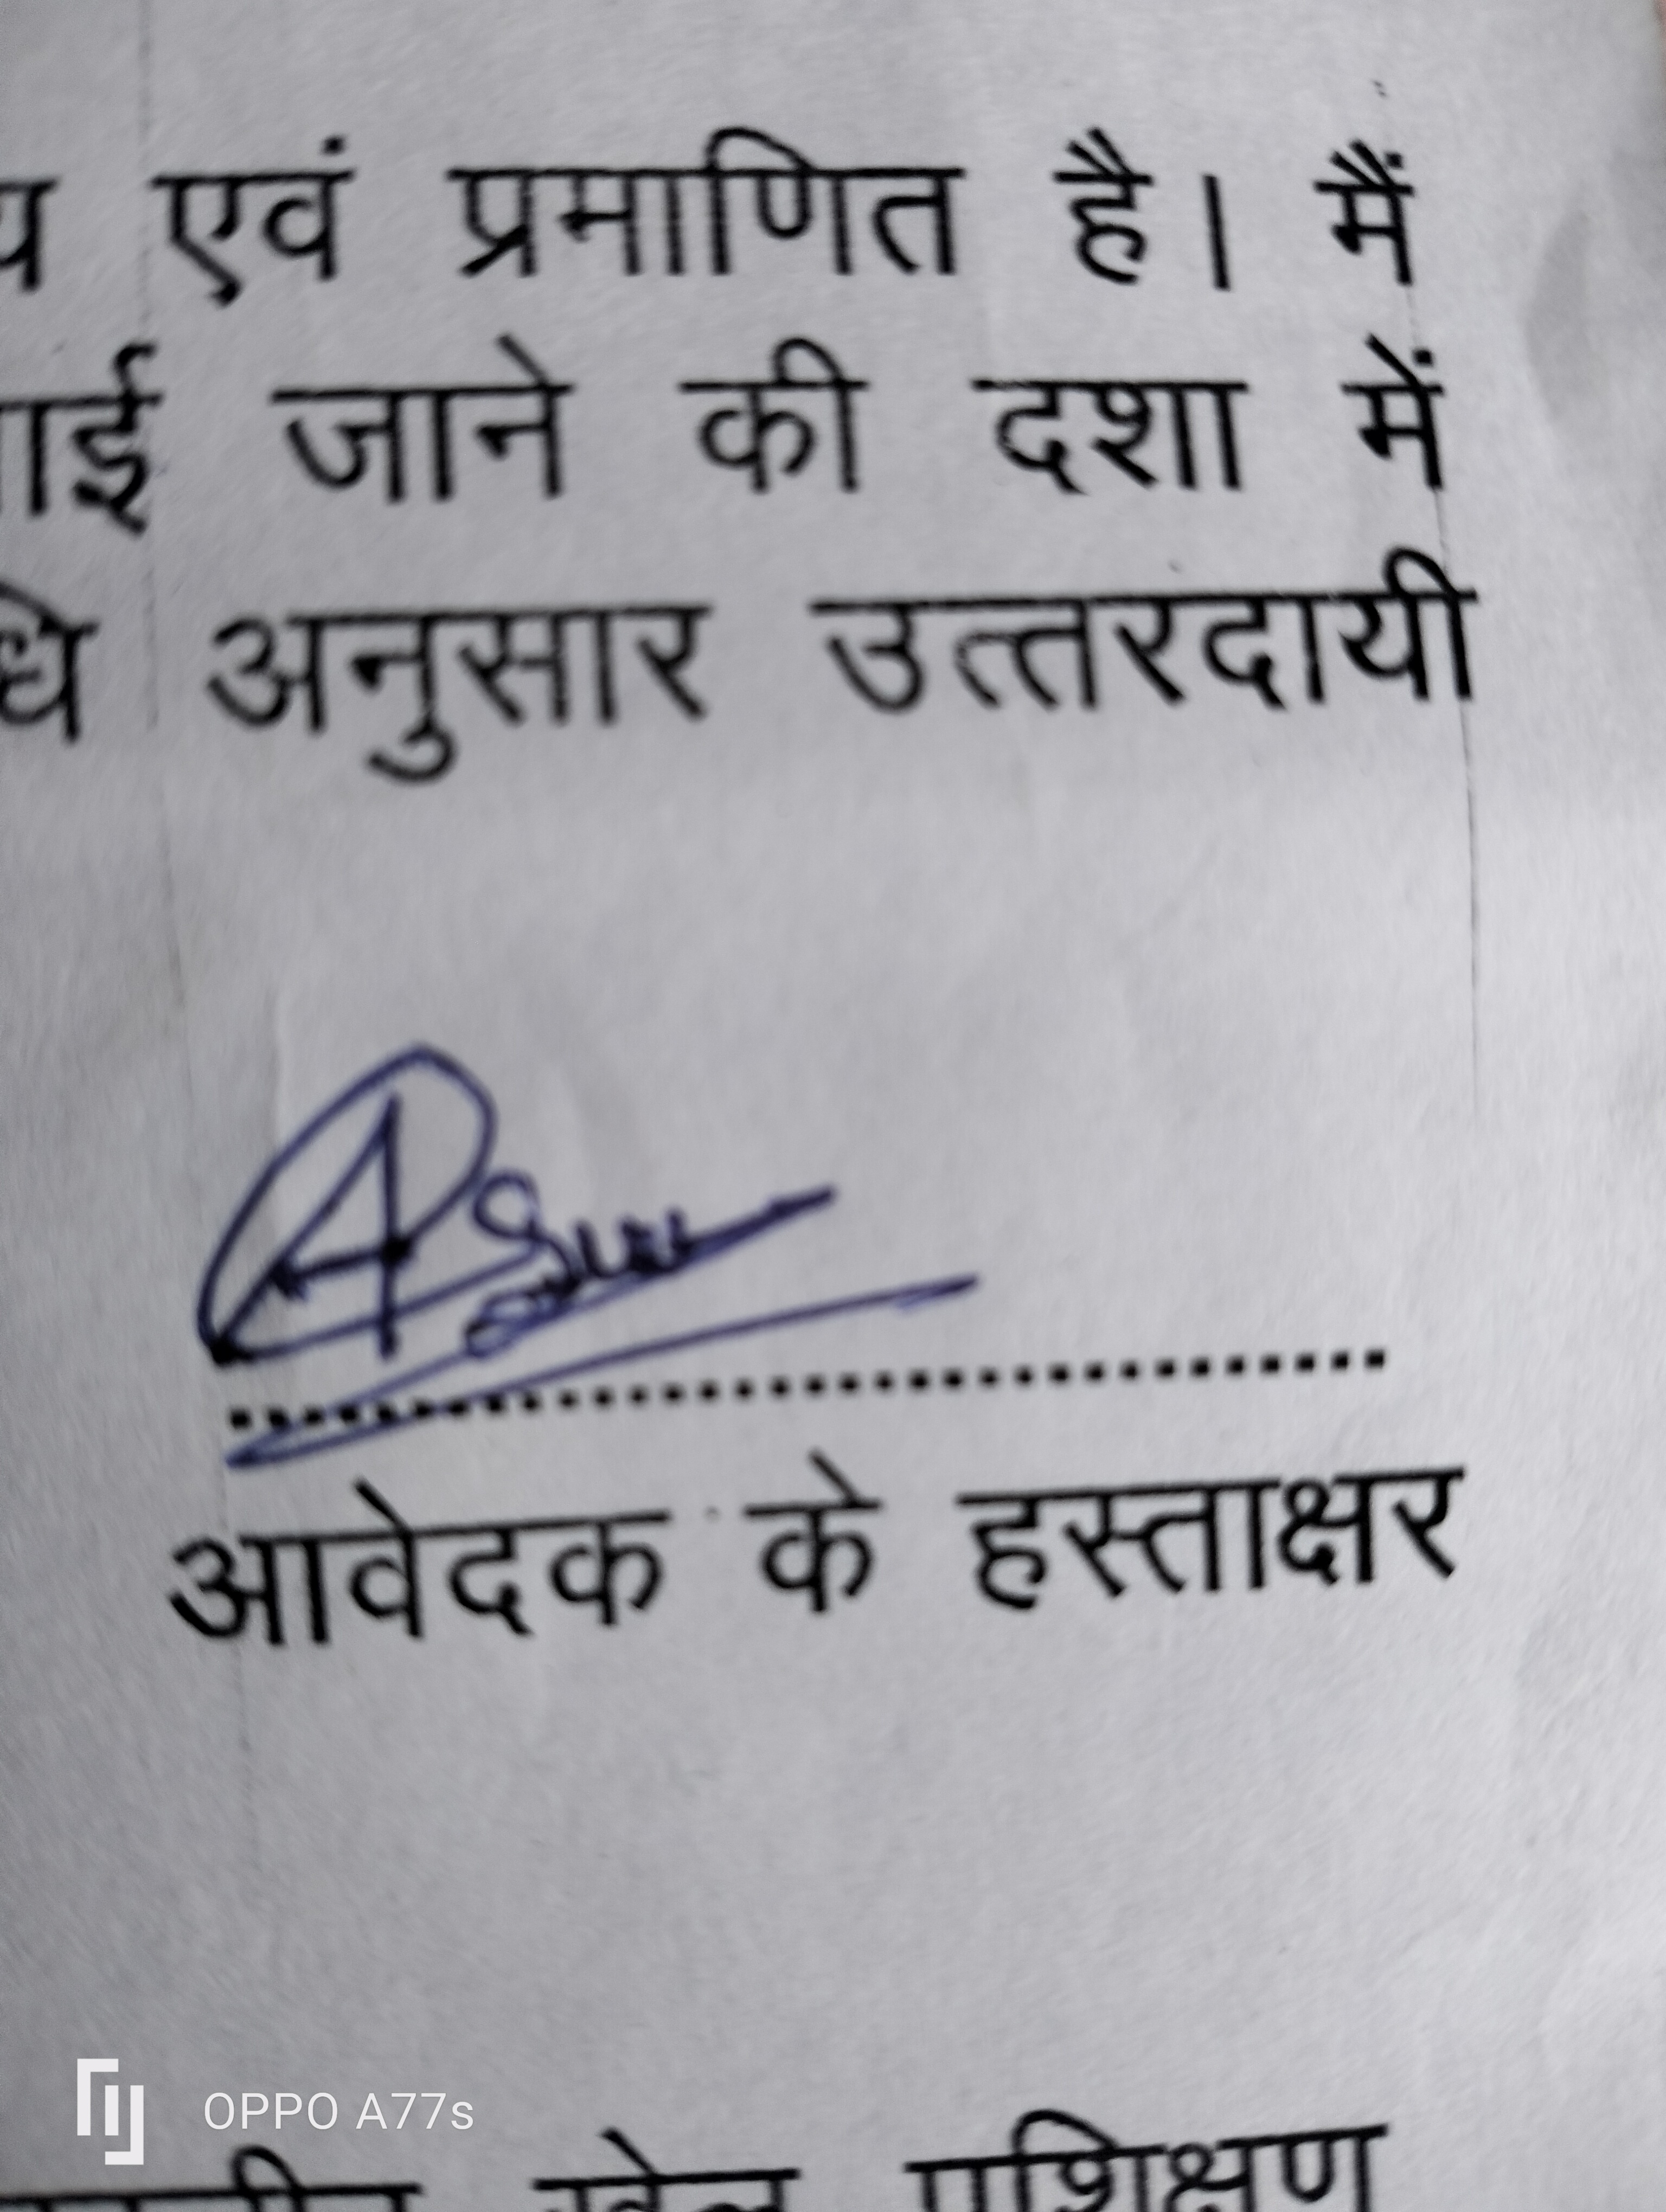 एवं प्रमाणित है। मैं
जाने की दशा में
अनुसार उत्तरदायी
आवेदक के हस्ताक्षर
OPPO A77s
खेल प्रशिक्षण